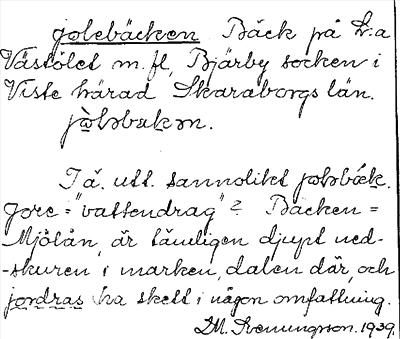 Jolsbäcken Bäck på St:a
Västölet m.fl, Bjärby socken i
Viste härad Skaraborgs län.

Tä. utt. sannolikt
Jore = "vattendrag"? Bäcken =
Mjölån, är tämligen djupt ned-
-skuren i marken, dalen där, och
jordras ha skett i någon omfattning.
M. Svenungson. 1939.